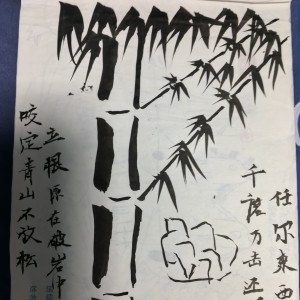 咬定青山不放松
立根原在破岩中
千磨万击还
任尔东西